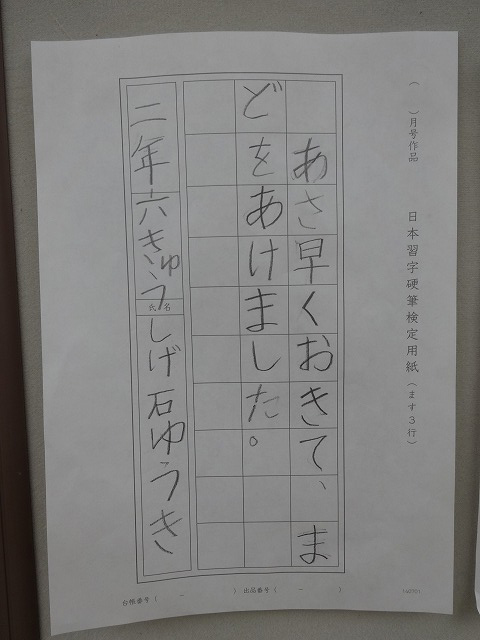 （　　）月号作品　日本習字硬筆検定用紙（ます３行）
あさ早くおきて、ま
どをあけました。
二年 六きゅう 氏名 しげ石ゆうき
台帳番号（　－　）　出品番号（　－　）